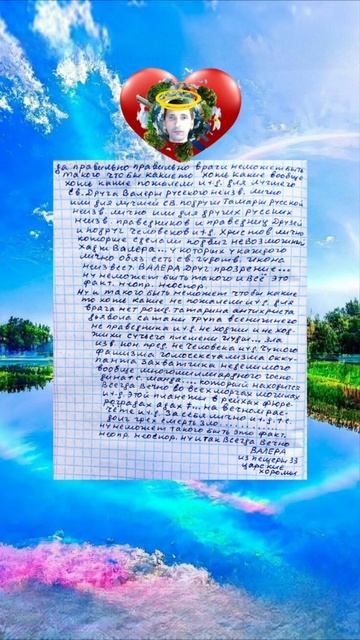 да правильно правильно врачи неможет быть
такого чтобы какие то хоне какие вообще
хоне какие пожалели и т.д. для лучшего
св. друга Валери русского неизв. лично
или для лучшей св. подруги Тамари русской
неизв. лично или для других русских
неизв. праведников и праведниц друзей
и подруг человеков и т.д. христов лично
которые сделали подвиг невозможный
как и Валера... у которых у каждого
лично обяз. есть св. чудотв. икона
неизвест. Валера друг прозрение...
ну неможет быть такого и всё это
факт. неопр. неоспор.
ну и такого быть неможет чтобы какие
то хоне какие не пожалели и т.д. для
врага нет роид. татарина антихриста
дьявола сатаны труна всенищенего
не праведника и т.д. не ходили и не ход.
жизни сучьего племени чуди... зла
изв. нон. пред. не человека и т.д. чужого
фашизма гомосексуализма окку
панта захватчика неделимого
вообще многомиллиардного госпо
дина с. манда.... который находится
всегда вечно во всех моргах могилах
и т.д. этой планеты в рейхах фюре
розрадах адах 7... на вечном рас
чёте и т.д. за себя лично и т.д. т.е.
долг грех смерть зло ..........
ну неможет такого быть это факт.
неопр. неоспор. ну и так всегда вечно
ВАЛЕРА
из пещеры 33
царские
хоромы